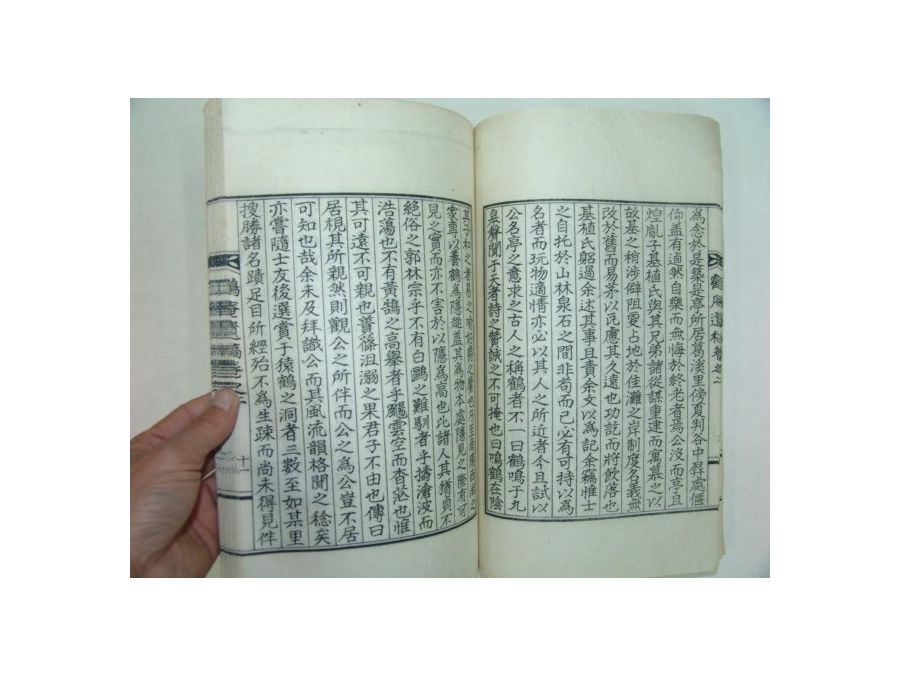 為念於是築是亭所居葛淡里傍夏判谷中昇處偃
仰盖有逌然自樂而無悔於終老者焉公沒而亭且
煌胤子基植氏與其兄弟諸從謀重建而寓慕也以
故基之稍涉僻阻更占地於佳灘之岸制度名義無
改於舊而易茅以瓦慮其久遠也功訖而將飲落也
基植氏躬過余述其事且責余文以為記余竊惟士
之自托於山林泉石之間非苟而已必有可持以為
名者而玩物適情亦必以其人之所近者今且試以
公名亭之意求之古人之稱鶴者不一曰鶴鳴于九
皐聲聞于天者詩之贊誠之不可掩也曰鳴鶴在陰
其子和之者易之
家專以養鶴為隱趣盖其為物本處隱見之際有可
見之實而亦不害於以隱為高也此諸人其猶貞不
絕俗之郭林宗乎不有白鷗之難馴者乎擣滄波而
浩蕩也不有黃鵠之高舉者乎颺雲空而杳茫也惟
其可遠不可親也昔篠沮溺之果君子不由也傳曰
居視其所親然則觀公之所伴而公之為公豈不居
可知也哉余未及拜識公而其風流韻格聞之稔矣
亦嘗隨士友後選賞于猿鶴之洞者三數至如某里
搜勝諸名蹟足目所經殆不為生疎而尚未得見伴
十一